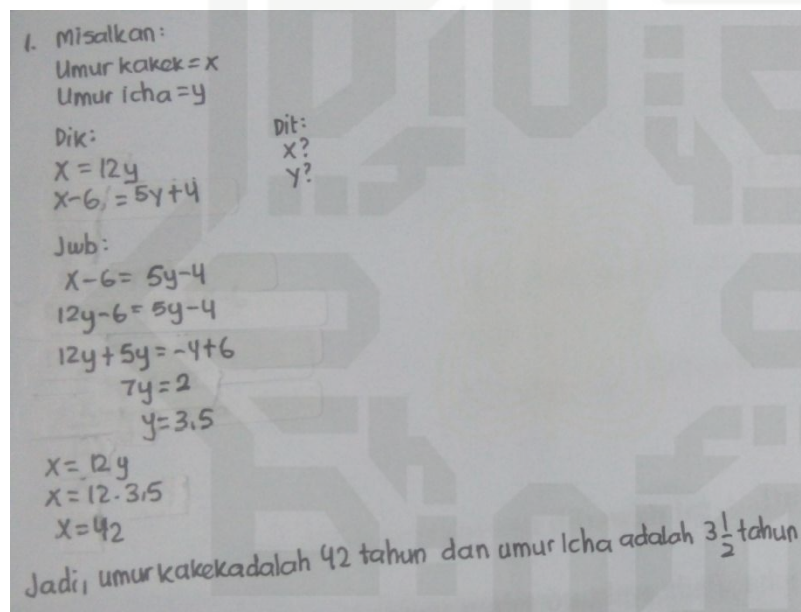 1. Misalkan:
Umur kakek = x
Umur icha = y
Dik:
x = 12y
x-6 = 5y+4
Dit:
x?
y?
Jwb:
x-6 = 5y-4
12y-6 = 5y-4
12y+5y = -4+6
7y = 2
y = 3,5
x = 12y
x = 12 . 3,5
x = 42
Jadi, umur kakek adalah 42 tahun dan umur Icha adalah 3 1/2 tahun